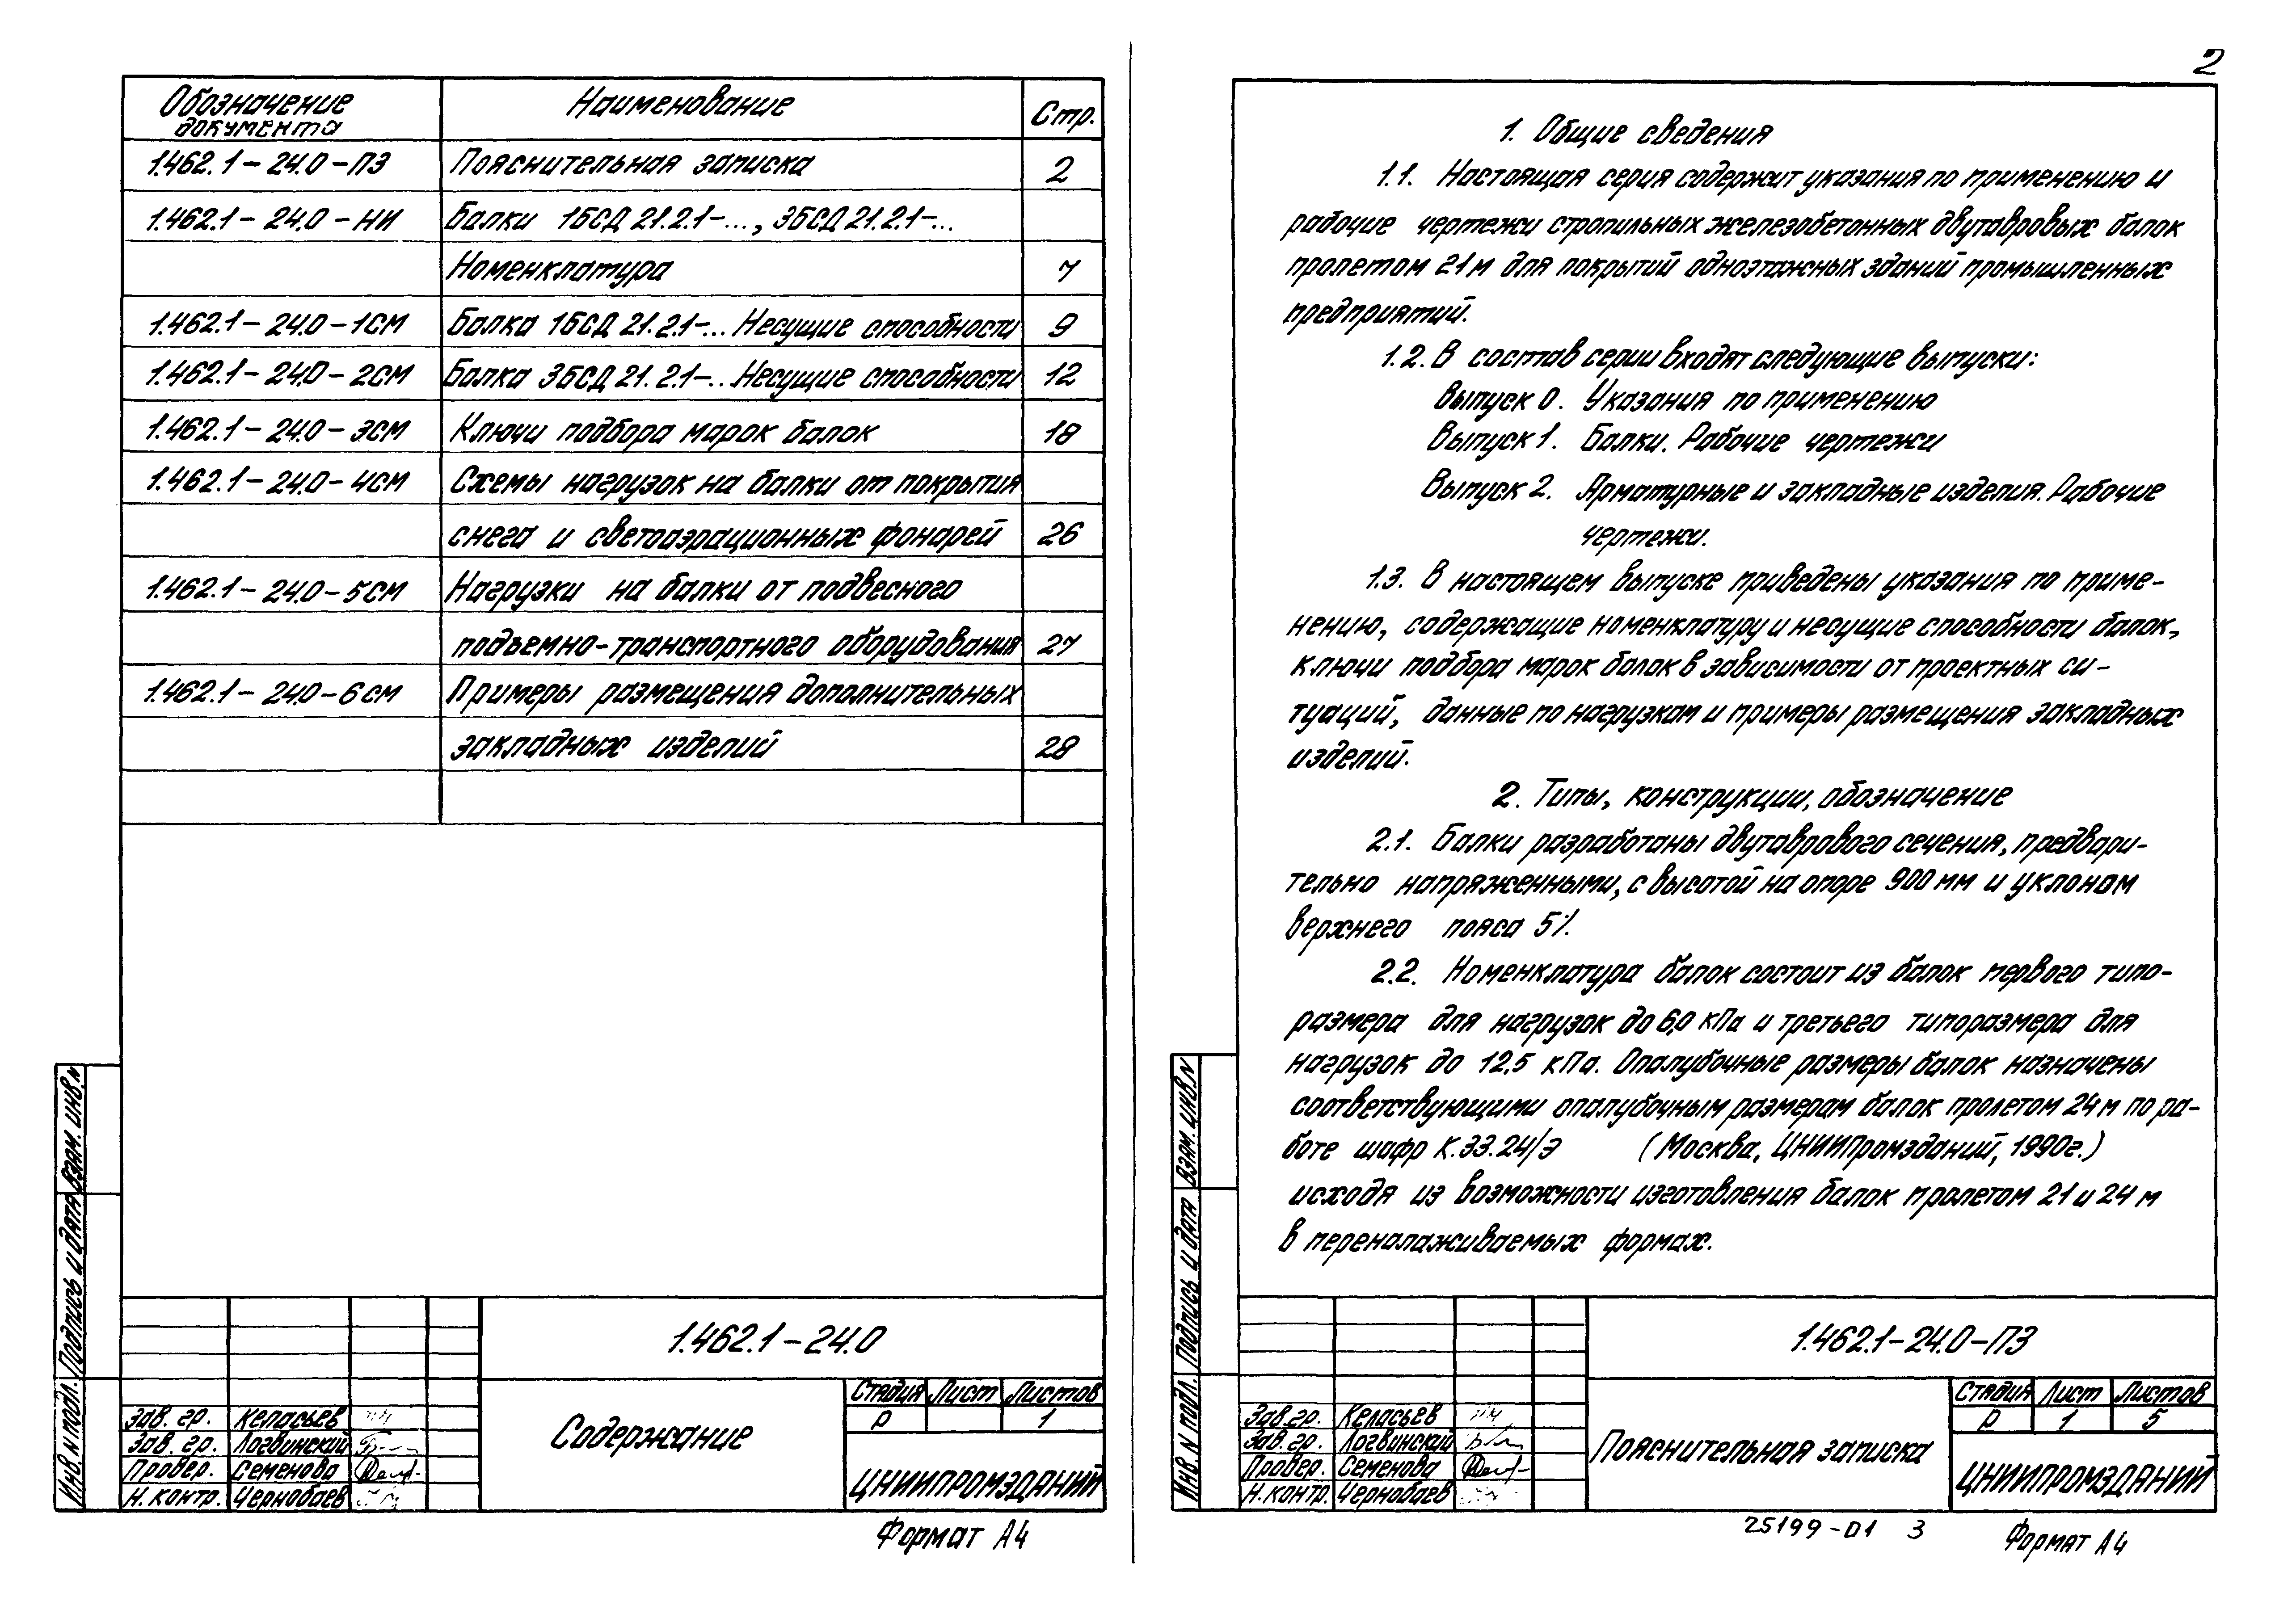 Обозначение документа Наименование Стр.
1.462.1-24.0-ПЗ Пояснительная записка 2
1.462.1-24.0-НИ Балки 1БСД 21.2.1-..., 3БСД 21.2.1-...
Номенклатура 7
1.462.1-24.0-1СМ Балка 1БСД 21.2.1-... Несущие способности 9
1.462.1-24.0-2СМ Балка 3БСД 21.2.1-... Несущие способности 12
1.462.1-24.0-3СМ Ключи подбора марок балок 18
1.462.1-24.0-4СМ Схемы нагрузок на балки от покрытия
снега и светоаэрационных фонарей 26
1.462.1-24.0-5СМ Нагрузки на балки от подвесного
подъемно-транспортного оборудования 27
1.462.1-24.0-6СМ Примеры размещения дополнительных
закладных изделий 28
Инв. N подл. Подпись и дата Взам. инв. N
1.462.1-24.0
Содержание
Стадия Лист Листов
Р 1
ЦНИИПРОМЗДАНИЙ
Зав. гр. Келасьев
Зав. гр. Логвинский
Провер. Семенова
Н. контр. Чернобаев
Формат А4
2
1. Общие сведения
1.1. Настоящая серия содержит указания по применению и
рабочие чертежи стропильных железобетонных двутавровых балок
пролетом 21м для покрытий одноэтажных зданий промышленных
предприятий.
1.2. В состав серии входят следующие выпуски:
Выпуск 0. Указания по применению
Выпуск 1. Балки. Рабочие чертежи
Выпуск 2. Арматурные и закладные изделия. Рабочие
чертежи.
1.3. В настоящем выпуске приведены указания по приме-
нению, содержащие номенклатуру и несущие способности балок,
ключи подбора марок балок в зависимости от проектных си-
туаций, данные по нагрузкам и примеры размещения закладных
изделий.
2. Типы, конструкции, обозначение
2.1. Балки разработаны двутаврового сечения, предвари-
тельно напряженными, с высотой на опоре 900 мм и уклоном
верхнего пояса 5%.
2.2. Номенклатура балок состоит из балок первого типо-
размера для нагрузок до 6,0 кПа и третьего типоразмера для
нагрузок до 12,5 кПа. Опалубочные размеры балок назначены
соответствующими опалубочным размерам балок пролетом 24м по ра-
боте шифр К.33.24/Э (Москва, ЦНИИПромзданий, 1990г.)
исходя из возможности изготовления балок пролетом 21 и 24 м
в переналаживаемых формах.
Инв. N подл. Подпись и дата Взам. инв. N
1.462.1-24.0-ПЗ
Пояснительная записка
Стадия Лист Листов
Р 1 5
ЦНИИПРОМЗДАНИЙ
Зав. гр. Келасьев
Зав. гр. Логвинский
Провер. Семенова
Н. контр. Чернобаев
25199-01 3
Формат А4